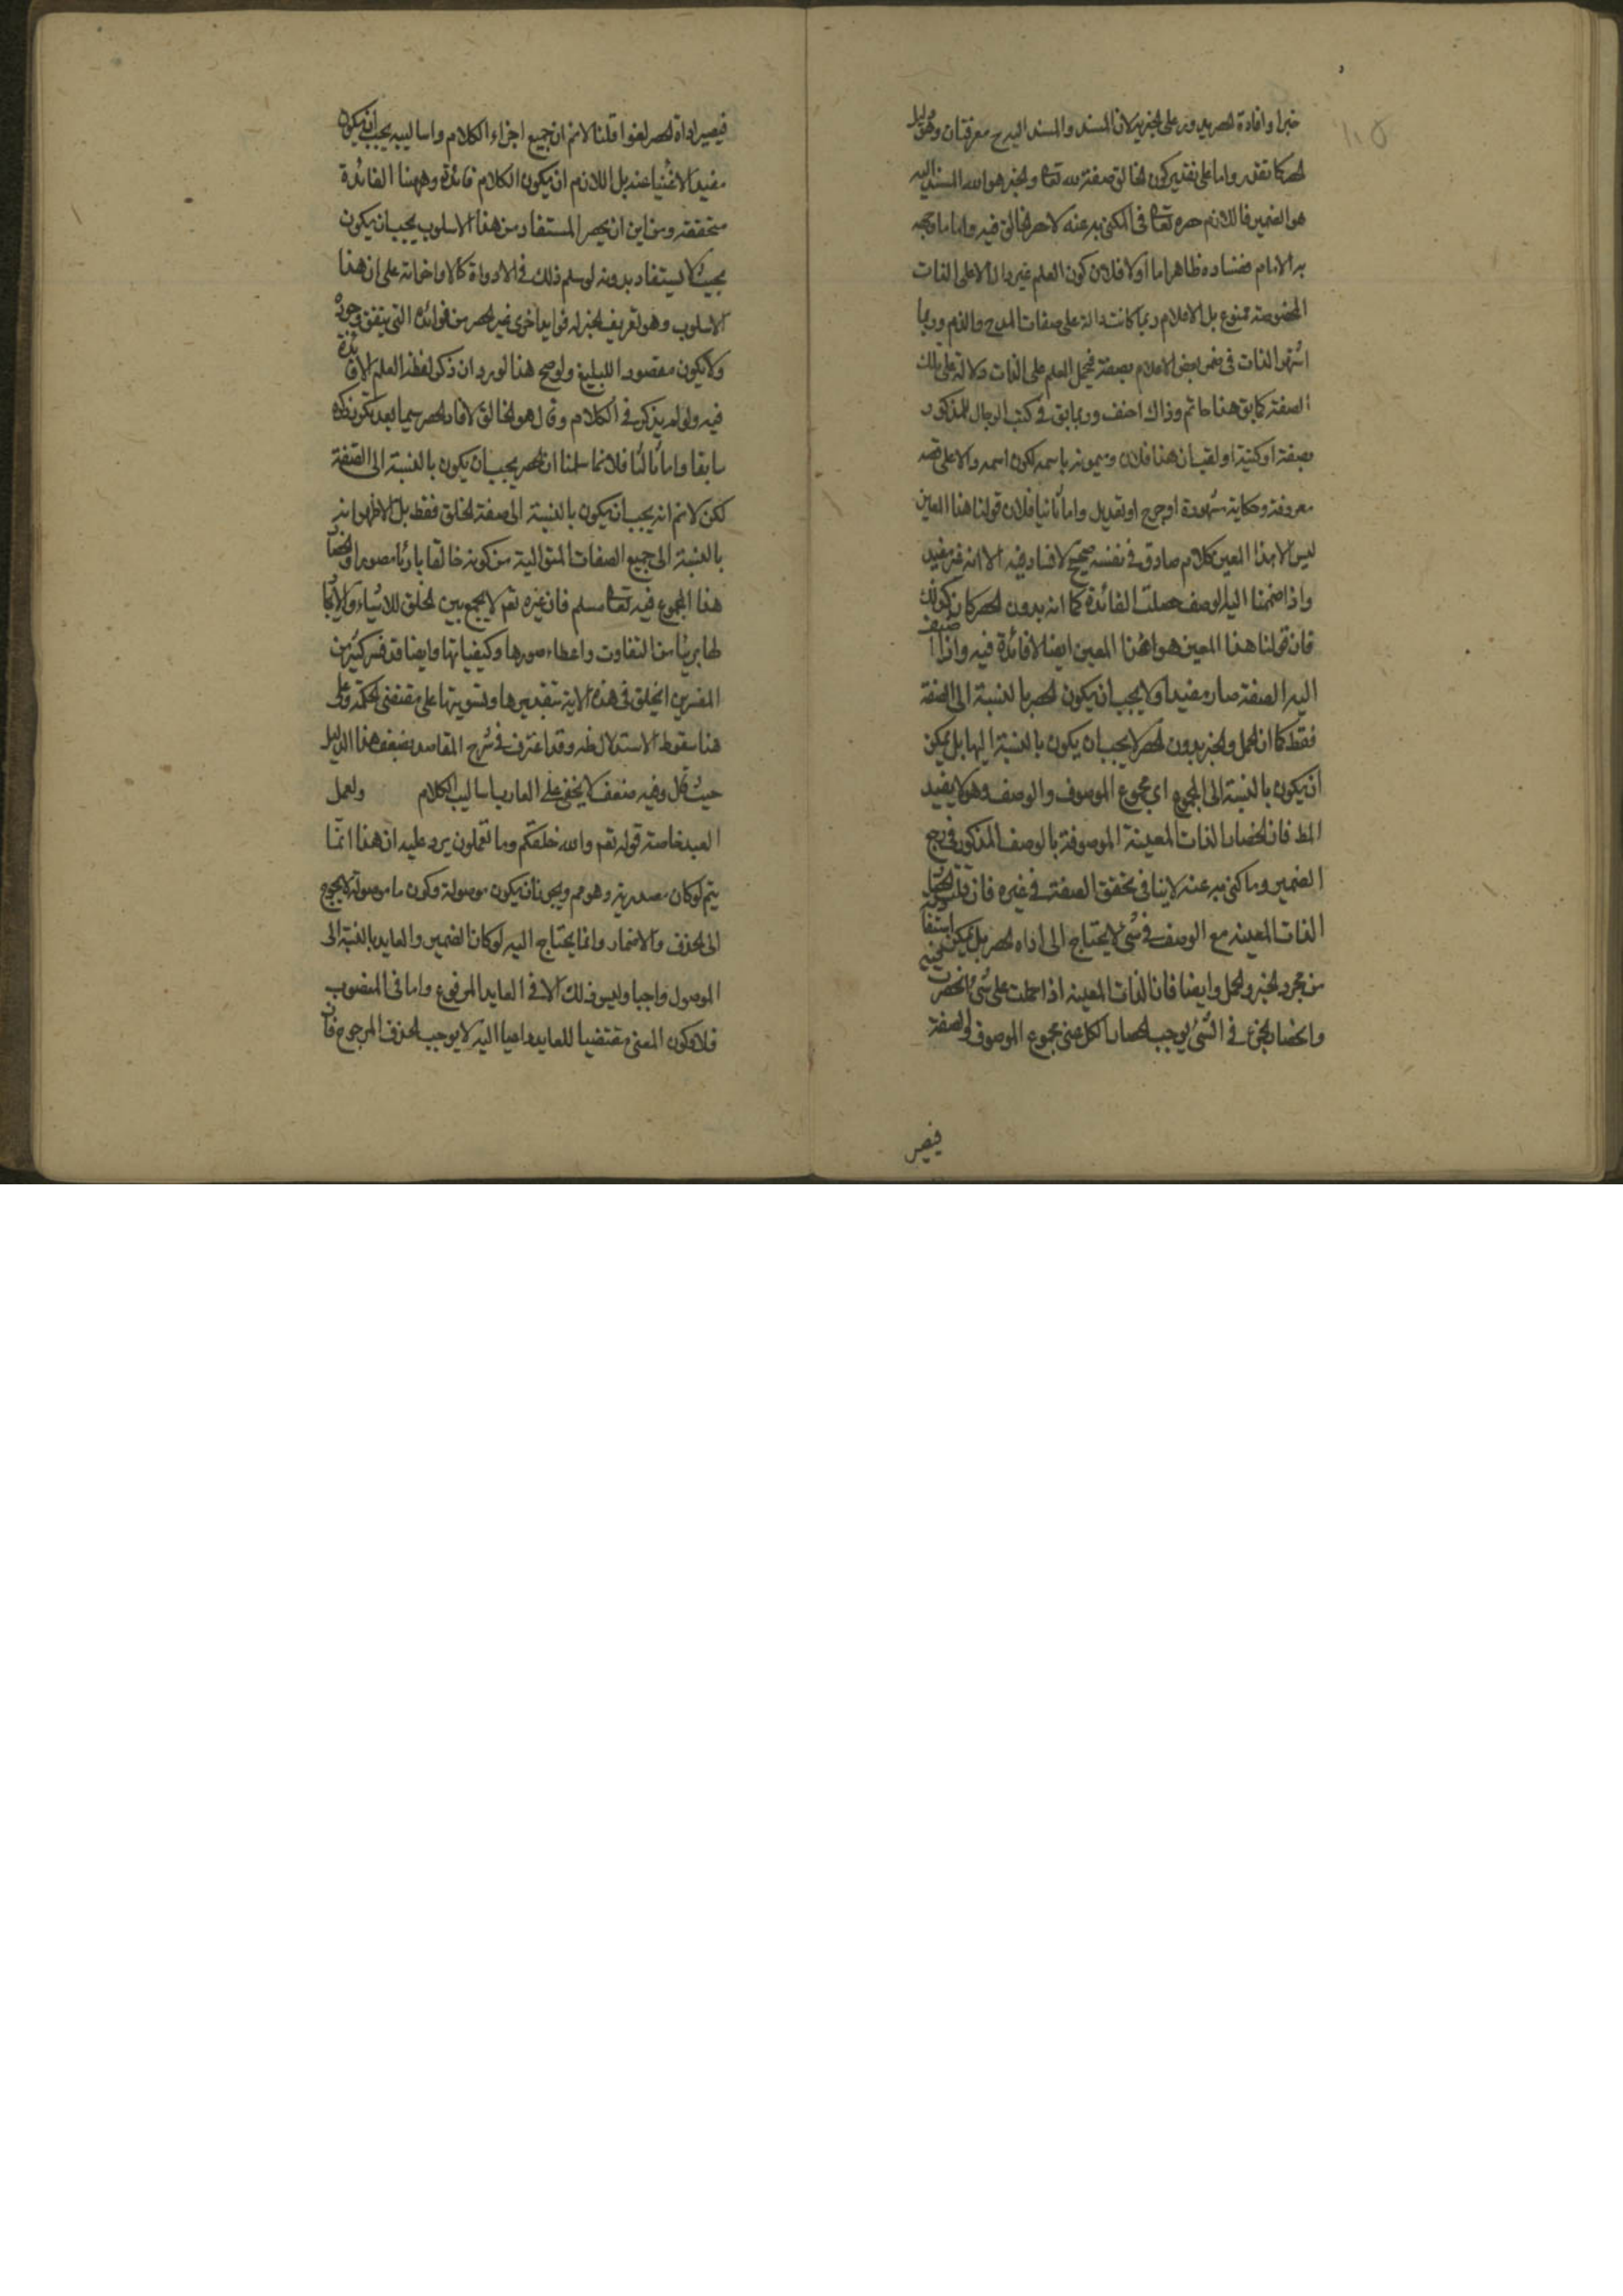 خبرا وافادة الحصر يدور على الخبرية لان المسند والمسند اليه ح معرفتان وهو
الحصر كما تقدم واما على تقدير كون الخالق صفة لله تعا والخبر هو الله المسند اليه
هو الضمير فاللازم حصره تعا في المكنى به عنه لا حصر الخالق فيه واما ما وجهه
به الامام ففساده ظاهر اما اولا فلان كون العلم غير دال الا على الذات
المخصوصة ممنوع بل الاعلام ربما كانت دالة على صفات المدح والذم وربما
اشتهر الذات في ضمن بعض الاعلام بصفة فيحمل العلم على الذات دلالة على تلك
الصفة كما يق هذا حاتم وذاك احنف وربما يق في كتب الرجال للمذكور
بصفة او كنية او لقب ان هذا فلان ويسمونه باسمه لكون اسمه دالا على قصة
معروفة وحكاية مشهودة او جرح او تعديل واما ثانيا فلان قولنا هذا المعين
ليس الا هذا المعين كلام صادق في نفسه صحيح لا فساد فيه الا انه غير مفيد
واذا ضممنا اليه الوصف حصلت الفائدة كما انه بدون الحصر كان كذلك
فان قولنا هذا المعين هو هذا المعين ايضا لا فائدة فيه واذا اضيف
اليه الصفة صار مفيدا ولا يجب ان يكون الحصر بالنسبة الى الصفة
فقط كما ان الحمل والخبر بدون الحصر لا يجب ان يكون بالنسبة اليها بل يمكن
ان يكون بالنسبة الى المجموع اي مجموع الموصوف والوصف وهو لا يفيد
المط فان انحصار الذات المعينة الموصوفة بالوصف المذكور في مرجع
الضمير وما كنى به عنه لا ينافي تحقق الصفة في غيره فان قلت انحصار
الذات المعينه مع الوصف في شئ لا يحتاج الى اداه الحصر بل يمكن استفادته
من مجرد الخبر والحمل وايضا فان الذات المعينه اذا حملت على شئ انحصرت فيه
وانحصار الجزء في الشئ يوجب انحصار الكل اعني مجموع الموصوف والصفة
فيصير
فيصير اداة الحصر لغوا قلنا لانم ان جميع اجزاء الكلام واساليبه يجب ان يكون
مفيدا لا غنيا عنه بل اللازم ان يكون الكلام فائدة وههنا الفائدة
متحققة ومن اين ان الحصر المستفاد من هذا الاسلوب يجب ان يكون
بحيث لا يستفاد بدونه لو سلم ذلك في الادواة كالا واخواته على ان هذا
الاسلوب وهو تعريف الخبر له فوايد اخرى غير الحصر من فوائده التي يتفق وجوده
ولا يكون مقصود البليغ ولو صح هذا لورد ان ذكر لفظ العلم لا فائدة
فيه ولو لم يذكر في الكلام وقال هو الخالق لافاد الحصر سيما بعد تكرر ذكره
سابقا واما ثالثا فلانا سلمنا ان الحصر يجب ان يكون بالنسبة الى الصفة
لكن لانم انه يجب ان يكون بالنسبة الى صفة الخلق فقط بل الاظهر انه
بالنسبة الى جميع الصفات المتوالية من كونه خالقا بارئا مصورا وانحصار
هذا المجموع فيه تعا مسلم فان غيره تعم لا يجمع بين الخلق للاشياء والايجاد
لها بريئا من التفاوت واعطاء صورها وكيفياتها وايضا قد فسر كثير من
المفسرين الخلق في هذه الاية بتقديرها وتسويتها على مقتضى الحكمة وعلى
هذا سقوط الاستدلال ظه وقد اعترف في شرح المقاصد بضعف هذا الدليل
حيث قال وفيه ضعف لا يخفى على العارف باساليب الكلام ولعمل
العبد خاصة قوله تعم والله خلقكم وما تعملون يرد عليه ان هذا انما
يتم لو كان مصدرية وهو مم ويجوز ان يكون موصولة وكون ما موصولة لا يحوج
الى الحذف والاضمار وانما يحتاج اليه لو كان الضمير والعايد بالنسبة الى
الموصول واجبا وليس ذلك الا في العايد المرفوع واما في المنصوب
فلا وكون المعنى مقتضيا للعايد داعيا اليه لا يوجب الحذف المرجوح فان